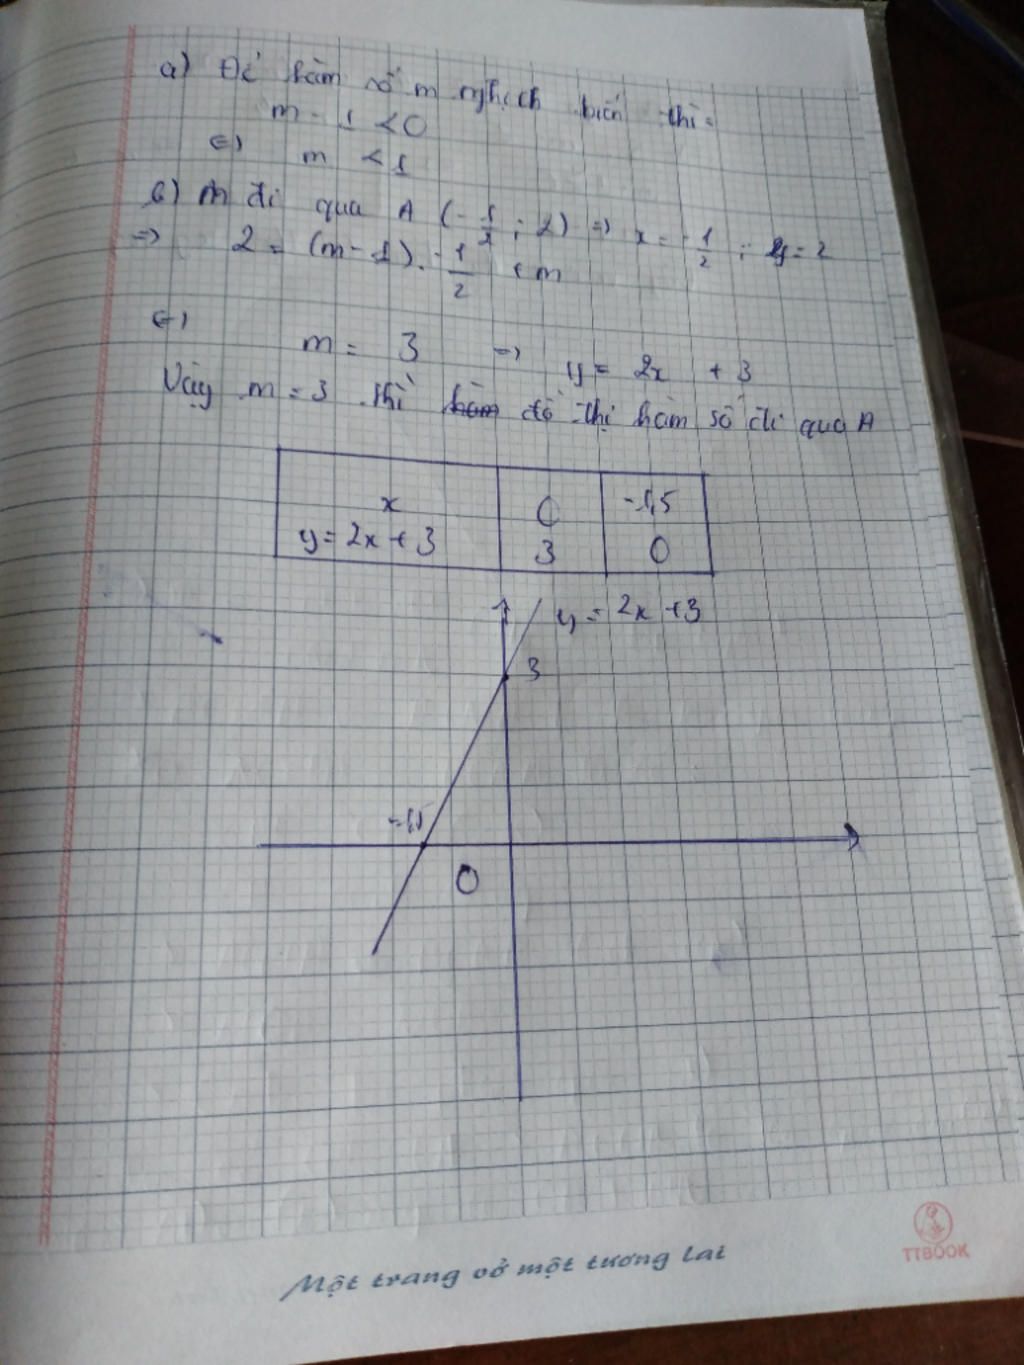 a) Để hàm số m nghịch biến thì:
m - 1 < 0
<=> m < 1
b) đi qua A (-1/2; 2) => x = -1/2 ; y = 2
=> 2 = (m-1). -1/2 + m
<=> m = 3 => y = 2x + 3
Vậy m = 3 thì đồ thị hàm số đi qua A
x 0 -1,5
y = 2x + 3 3 0
y = 2x + 3
3
-1,5
0
Một trang vở một tương lai
TTBOOK